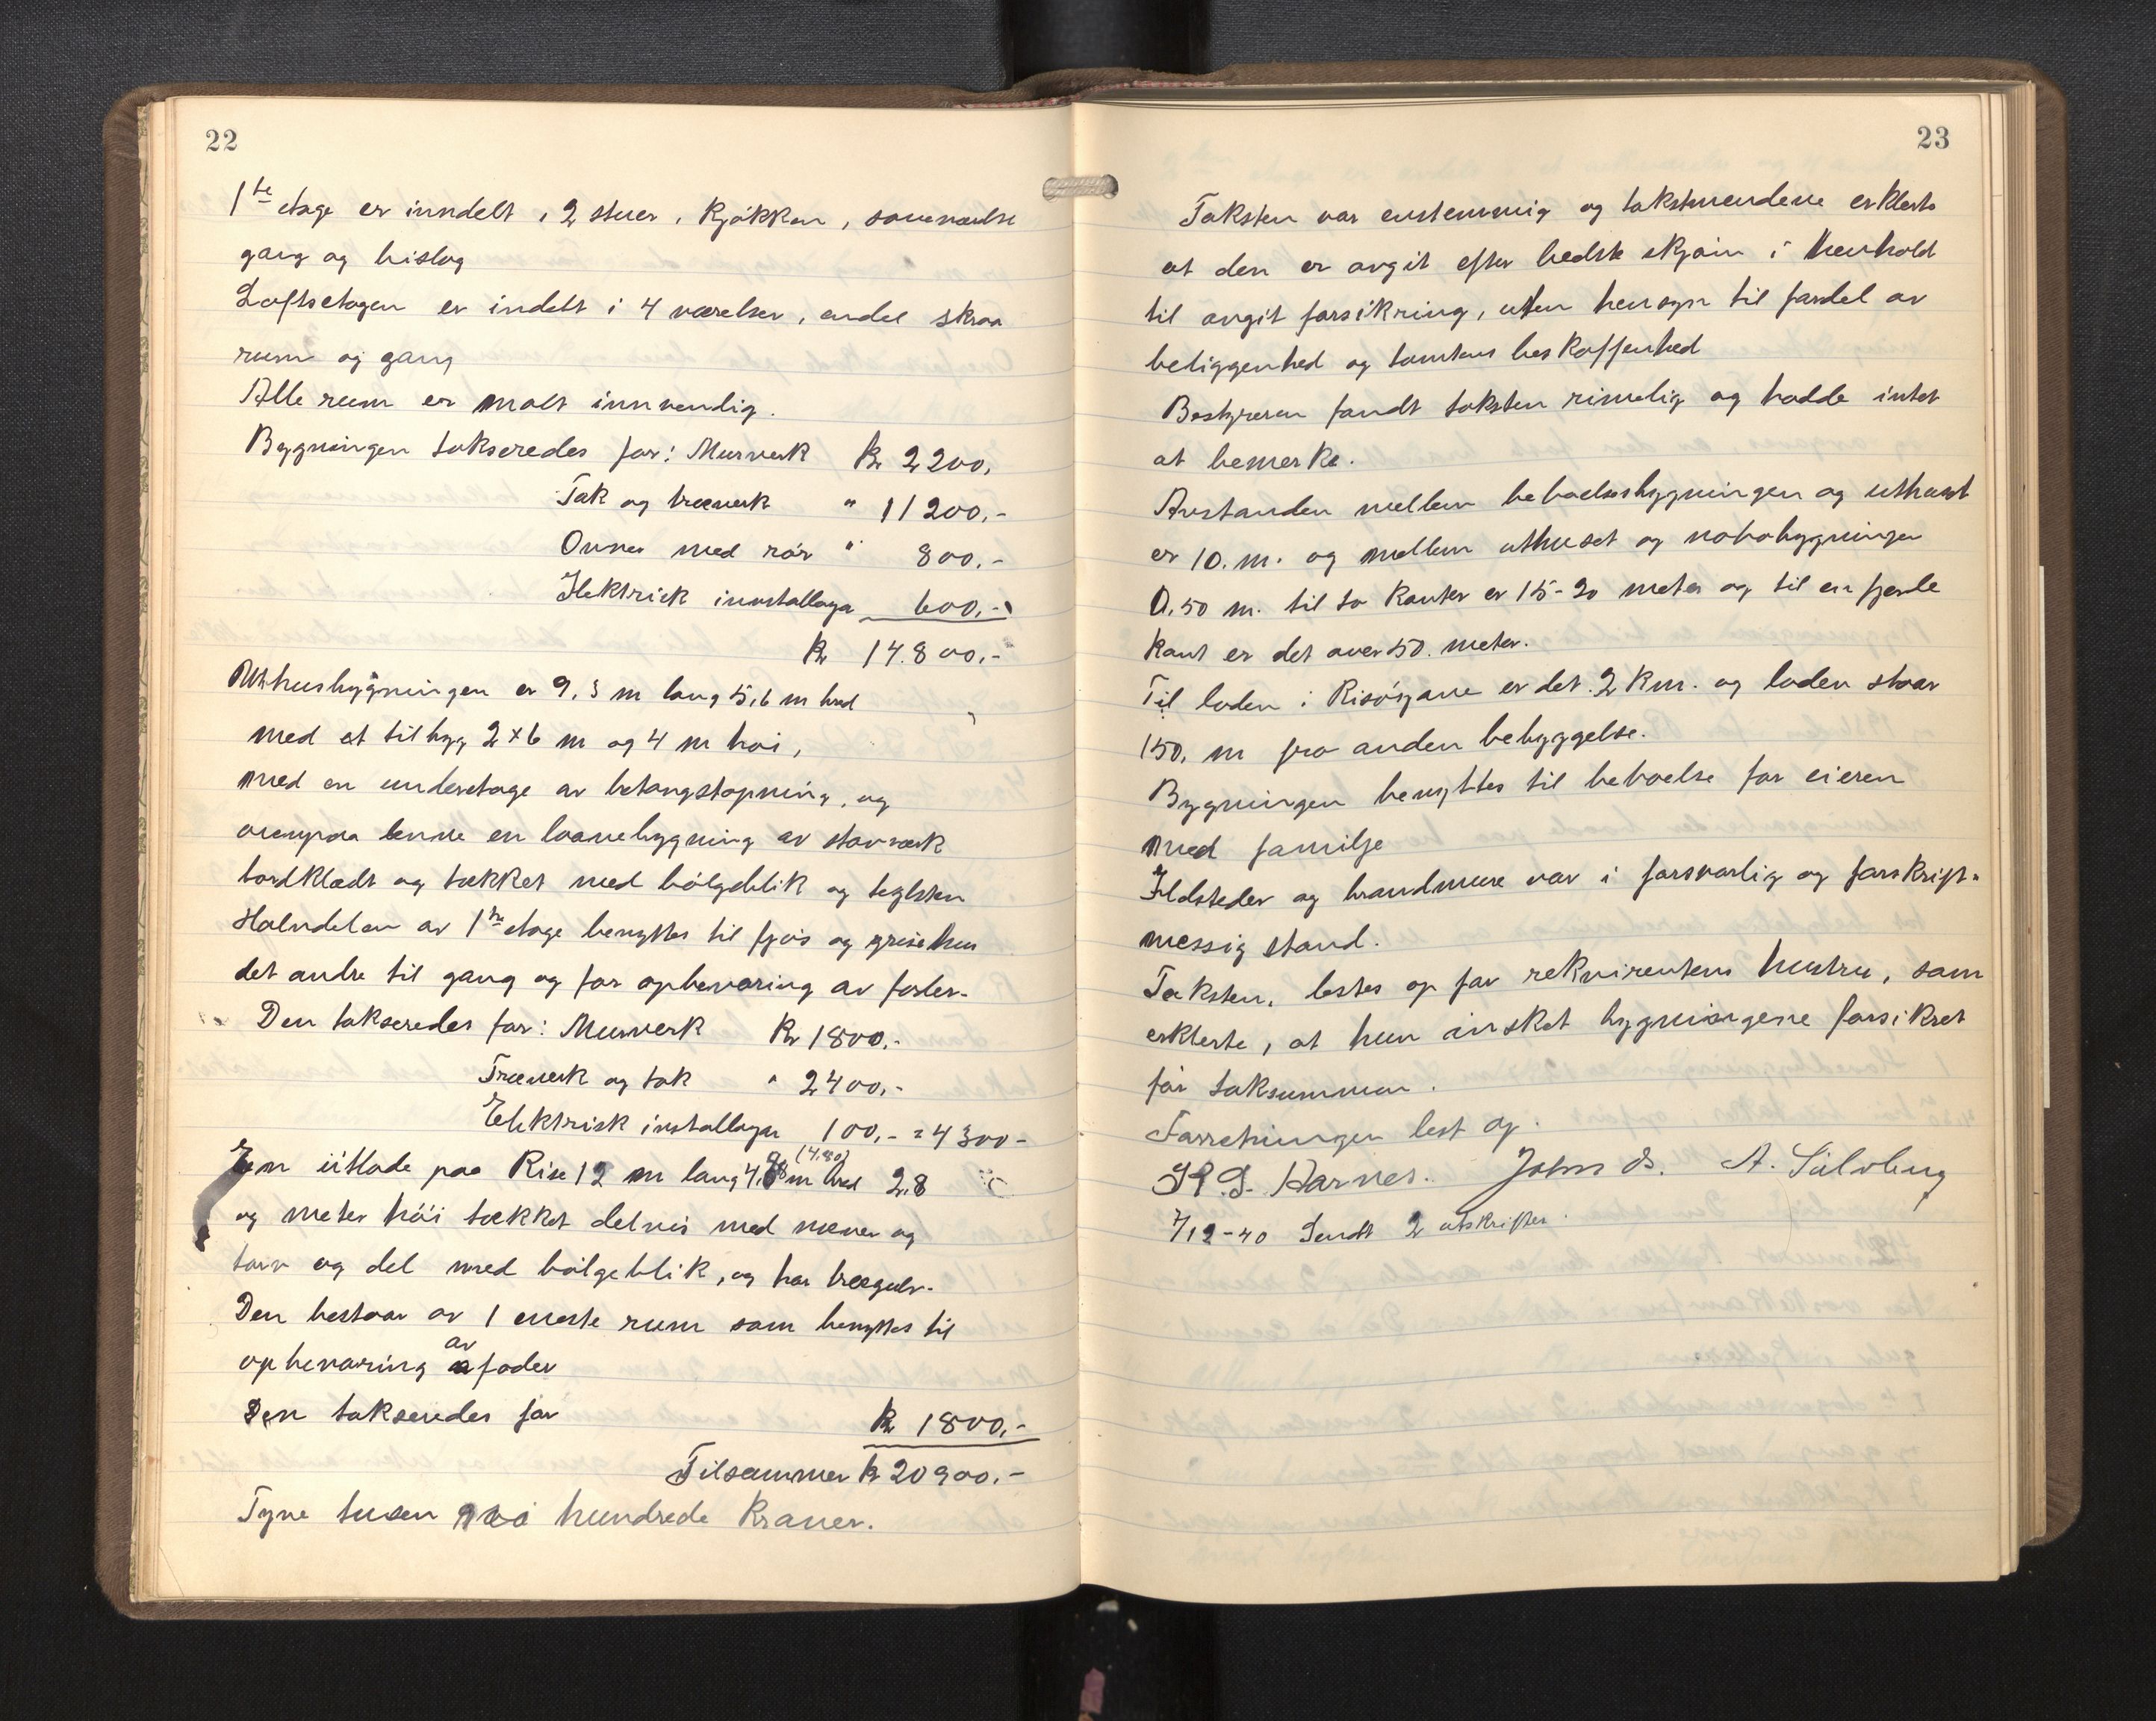 22
1te etage er inndelt i 2 stuer, kjøkken, soveværelse
gang og bislag
Loftsetagen er indelt i 4 værelser, endel skraa
rum og gang
Alle rum er malt innvendig.
Bygningen takseredes for: Murverk Kr 2200,
Tak og træverk " 11200,-
Ovner med rør " 800.-
Elektrisk innstallasja 600,-
Kr 14.800.-
Uthusbygningen er 9,3 m lang 5,6 m bred
med et tilbyg 2x6 m og 4 m høi,
med en underetage av betongstøpning, og
ovenpaa denne en laavebygning av stavværk
bordklædt og tækket med bølgeblik og teglsten
Halvdelen av 1ste etage benyttes til fjøs og grisehus
det andre til gang og for opbevaring av foder.
Den takseredes for: Murverk Kr 1800.-
Træverk og tak " 2400,-
Elektrisk installasja 100,- = 4300-
(4.80)
En utlade paa Risø 12 m lang 4,8 m bred 2,8
og meter høi tækket delvis med næver og
torv og del med bølgeblik, og har trægulv.
Den bestaar av 1 eneste rum som benyttes til
av
opbevaring foder
Den takseredes for Kr 1800,-
Tilsammen kr 20900.-
Tyve tusen ni hundrede Kroner.
23
Taksten var enstemmig og takstmendene erklerte
at den er avgit efter bedste skjøn i henhold
til avgit forsikring, uten hensyn til fordel av
beliggenhed og tomtens beskaffenhed
Bestyreren fandt taksten rimelig og hadde intet
at bemerke.
Avstanden mellem beboelsesbygningen og uthuset
er 10. m. og mellem uthuset og nabobygningen
0,50 m. til to kanter er 15-20 meter og til en fjerde
kant er det over 50. meter.
Til laden i Risøsjøne er det 2 Km. og laden staar
150. m fra anden bebyggelse.
Bygningen benyttes til beboelse for eieren
med familje
Ildsteder og brandmure var i forsvarlig og forskrift-
messig stand.
Taksten, lestes op for rekvirentens hustru, som
erklerte, at hun ønsket bygningene forsikret
for taksummen.
Forretningen lest op.
Harnes. Johns A. Sulebug
7/12-40 Sendt 2 utskrifter.